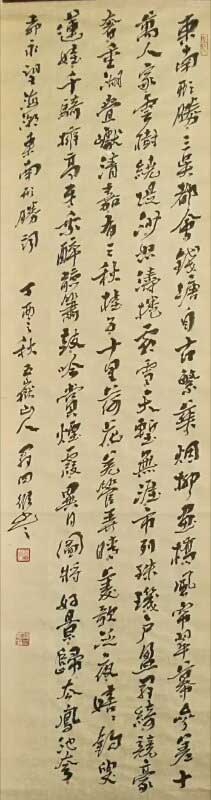 東南形勝三吳都會錢塘自古繁華烟柳畫橋風帘翠幕參差十
萬人家雲樹繞堤沙怒濤捲霜雪天塹無涯市列珠璣戶盈羅綺競豪
奢重湖疊巘清嘉有三秋桂子十里荷花羌管弄晴菱歌泛夜嬉〻釣叟
蓮娃千騎擁高牙乘醉聽簫鼓吟賞煙霞異日圖將好景歸去鳳池夸
柳永望海潮東南形勝詞 丁酉之秋五嶽山人